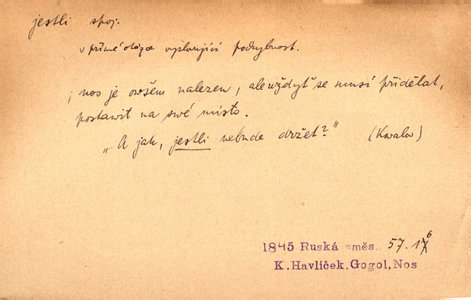 jestli spoj.
v přímé otázce vyslovující pochybnost.
; nos je ovšem nalezen, ale vždyť se musí přidělat,
postavit na své místo.
„A jak, jestli nebude držet?" (Kovalev)
1845 Ruská směs. 57.17 6
K.Havlíček, Gogol, Nos